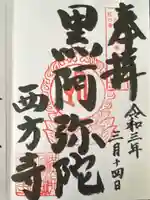 奉拝
令和三年
三月十四日
黒阿弥陀
西方寺